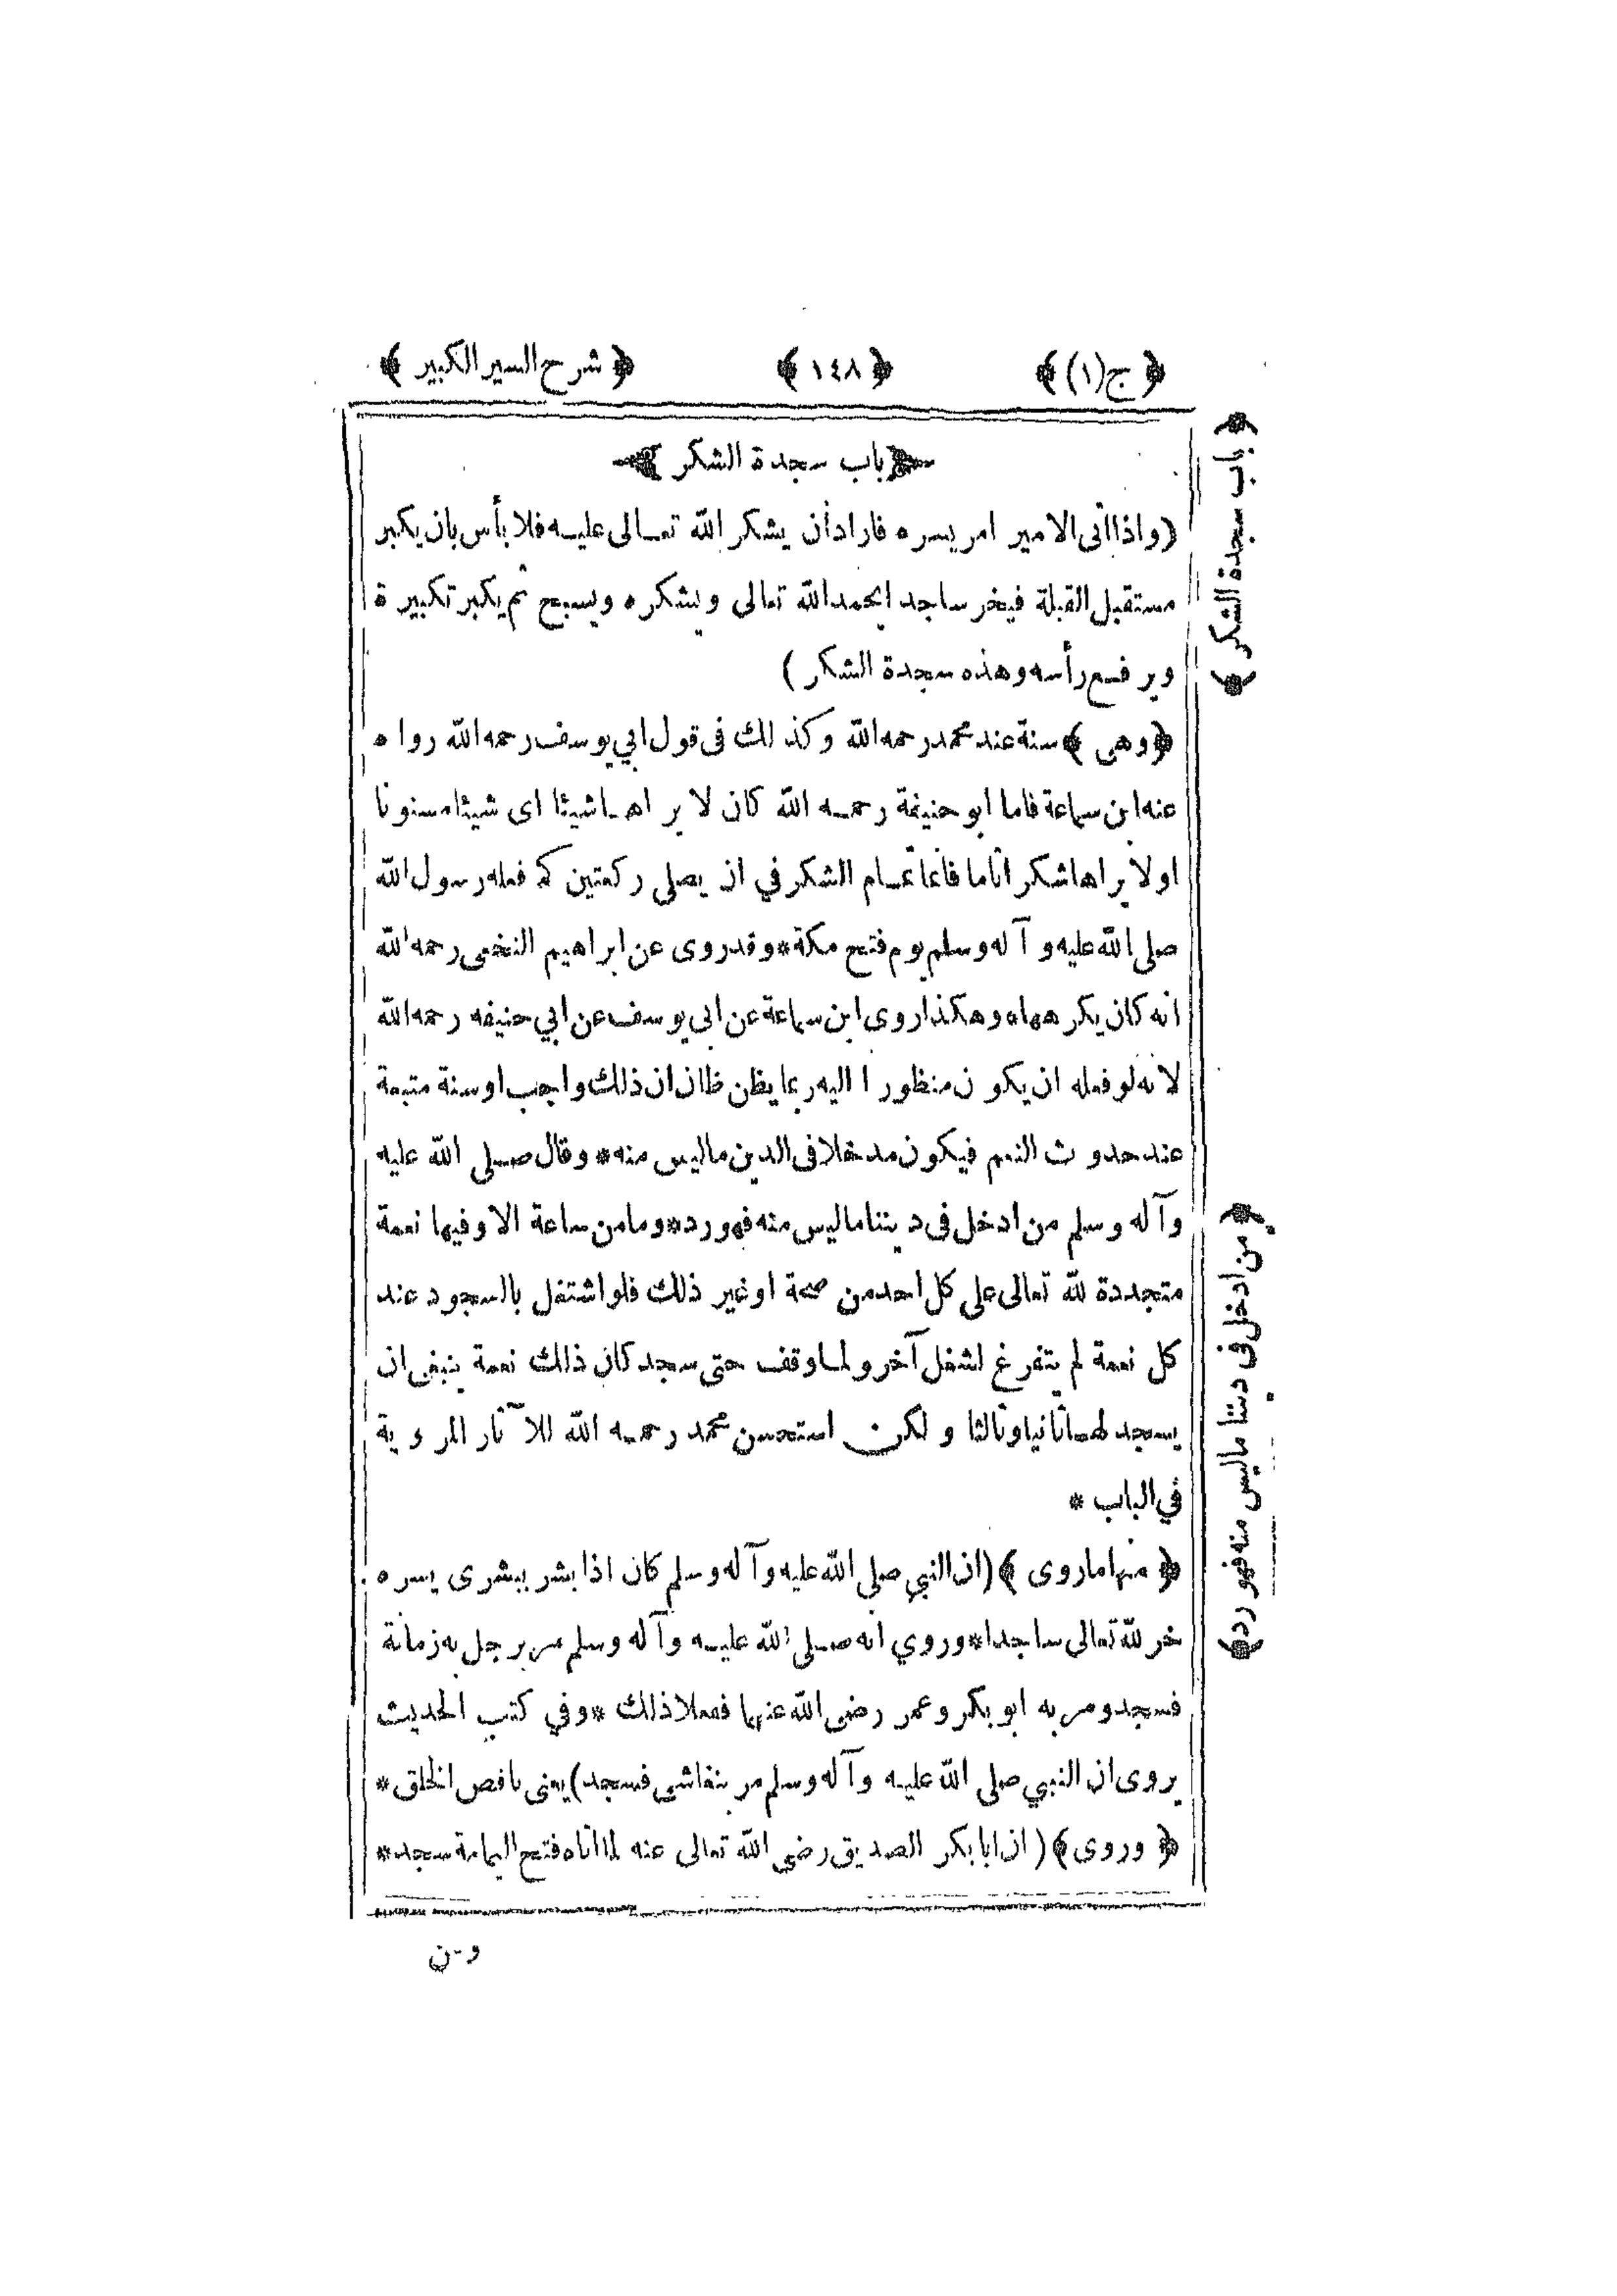 ﴿ ج(١) ﴾ ﴿ ١٤٨ ﴾ ﴿ شرح السير الكبير ﴾
﴿ باب سجدة الشكر ﴾
(واذا أتى الامير امر يسره فاراد أن يشكر الله تعالى عليه فلا بأس بان يكبر
مستقبل القبلة فيخر ساجد ا يحمد الله تعالى ويشكره ويسبح ثم يكبر تكبيرة
ويرفع رأسه وهذه سجدة الشكر )
﴿ وهي ﴾ سنة عند محمد رحمه الله وكذلك فى قول ابي يوسف رحمه الله رواه
عنه ابن سماعة فاما ابو حنيفة رحمه الله كان لا يراها شيئا اى شيئا مسنونا
او لا يراها شكر اتاما فانما تمام الشكر في ان يصلى ركعتين كم فعله رسول الله
صلى الله عليه وآله وسلم يوم فتح مكة * وقد روى عن ابراهيم النخعى رحمه الله
انه كان يكرهها * وهكذا روى ابن سماعة عن ابى يوسف عن ابي حنيفه رحمه الله
لانه لو فعله ان يكون منظورا اليه ربما يظن ظان ان ذلك واجب او سنة متبعة
عند حدوث النعم فيكون مدخلا فى الدين ماليس منه * وقال صلى الله عليه
وآله وسلم من ادخل فى ديننا ماليس منه فهو رد * وما من ساعة الا وفيها نعمة
متجددة لله تعالى على كل احد من صحة او غير ذلك فلو اشتغل بالسجود عند
كل نعمة لم يتفرغ لشغل آخر ولما وقف حتى سجد كان ذلك نعمة ينبغى ان
يسجد لها ثانيا وثالثا و لكن استحسن محمد رحمه الله للآثار المروية
في الباب *
﴿ منها ما روى ﴾ (ان النبي صلى الله عليه وآله وسلم كان اذا بشر ببشرى يسره
خر لله تعالى ساجدا * وروي انه صلى الله عليه وآله وسلم مر برجل به زمانة
فسجد ومر به ابو بكر وعمر رضى الله عنهما ففعلا ذلك * وفي كتب الحديث
يروى ان النبي صلى الله عليه وآله وسلم مر بنغاشى فسجد) يعنى ناقص الخلق *
﴿ وروى ﴾ ( ان ابا بكر الصديق رضى الله تعالى عنه لما اتاه فتح اليمامة سجد *
﴿ باب سجدة الشكر ﴾
﴿ من ادخل فى ديننا ماليس منه فهو رد ﴾